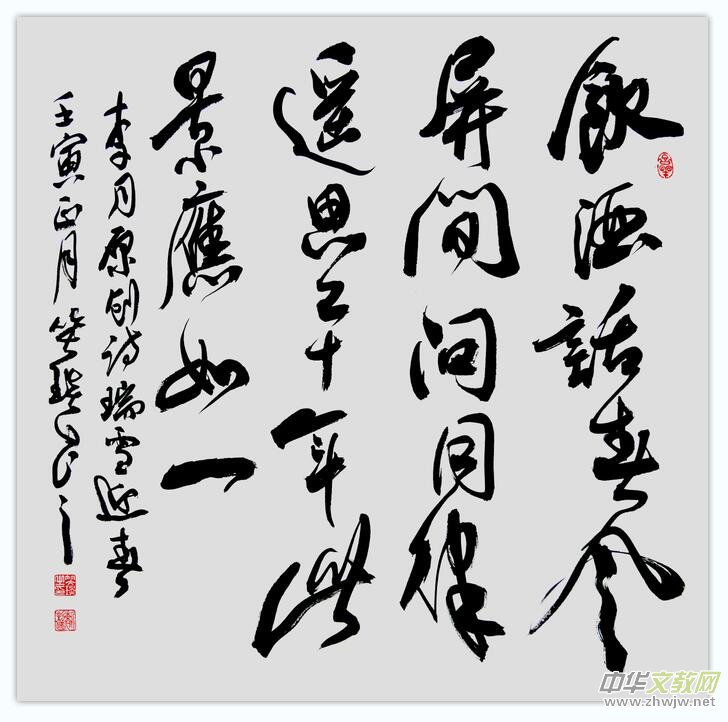 飲酒話春风
屏間问同律
遥思二十年此
景應如一
李月原创诗瑞雪迎春
壬寅正月
中华文教网
www.zhwjw.net